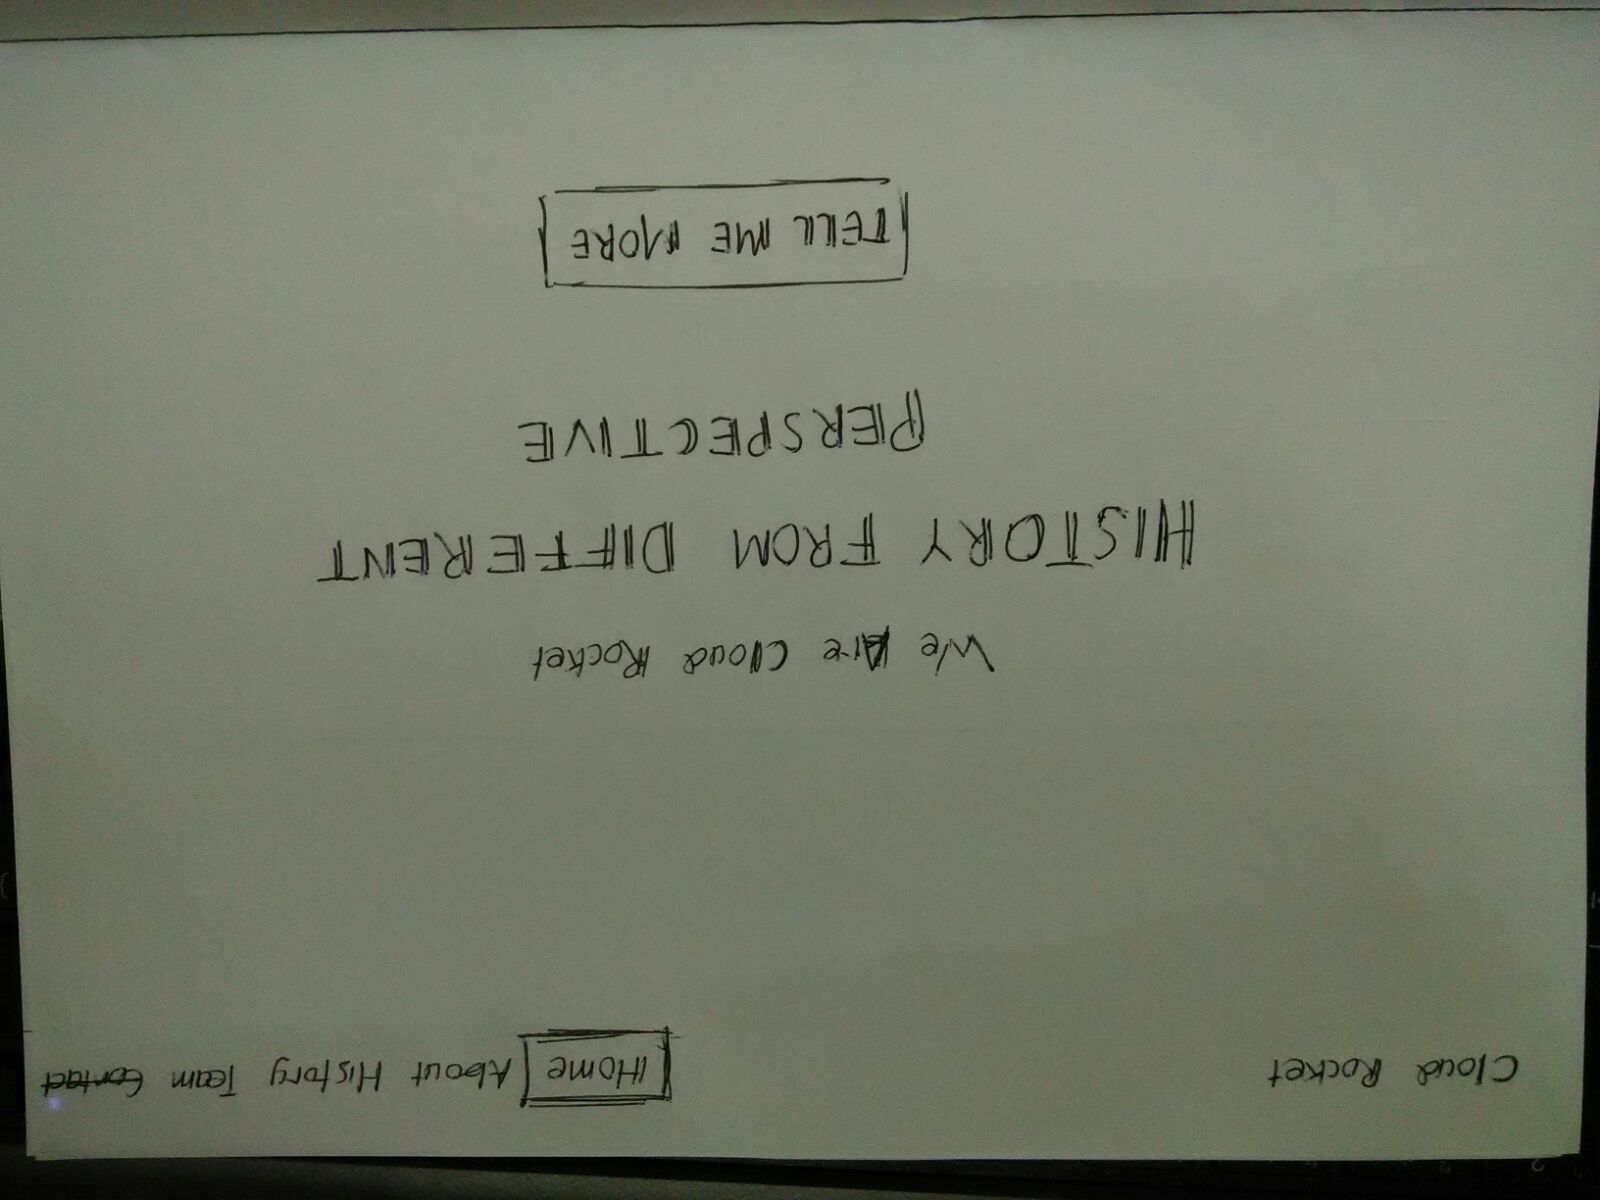 Cloud Rocket Home About History Team Contact
We Are Cloud Rocket
HISTORY FROM DIFFERENT
PERSPECTIVE
TELL ME MORE